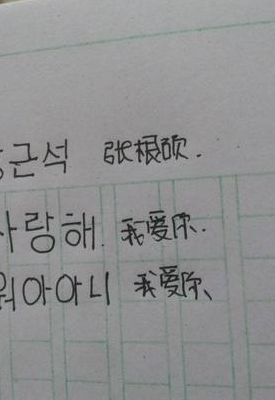 근석 张根硕.
사랑해. 我爱你.
워아아니 我爱你、